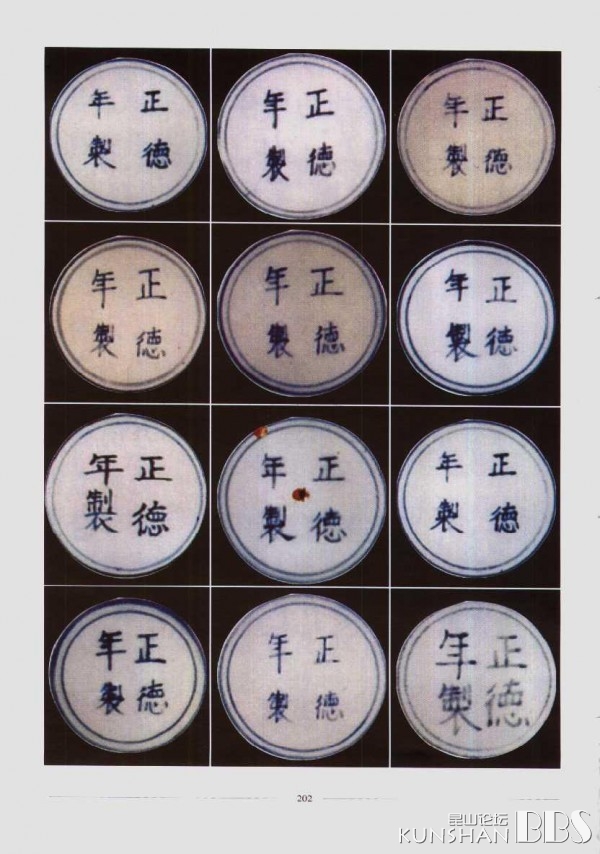 正德
年製
正德
年製
正德
年製
正德
年製
正德
年製
正德
年製
正德
年製
正德
年製
正德
年製
正德
年製
正德
年製
正德
年製
202
昆山论坛
KUNSHAN BBS